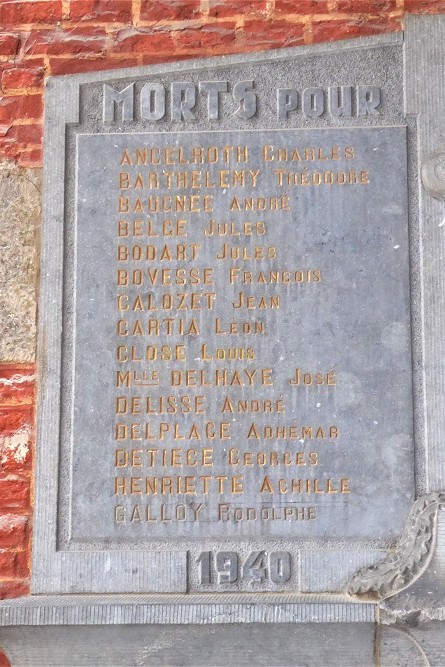 MORTS POUR
ANGELROTH CHARLES
BARTHELEMY THÉODORE
BAUGNÉE ANDRÉ
BELGE JULES
BODART JULES
BOVESSE FRANÇOIS
CALOZET JEAN
CARTIA LÉON
CLOSE LOUIS
MLLE DELHAYE JOSÉ
DELISSE ANDRÉ
DELPLACE ADHEMAR
DETIEGE GEORGES
HENRIETTE ACHILLE
GALLOY RODOLPHE
1940